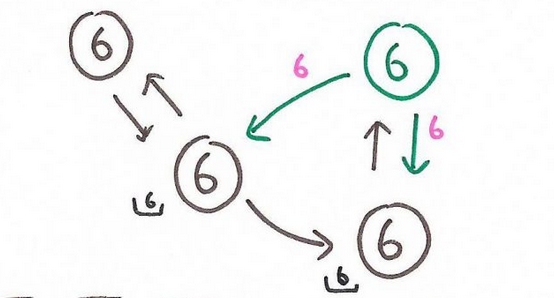 6
6
6
6
6
6
6
6